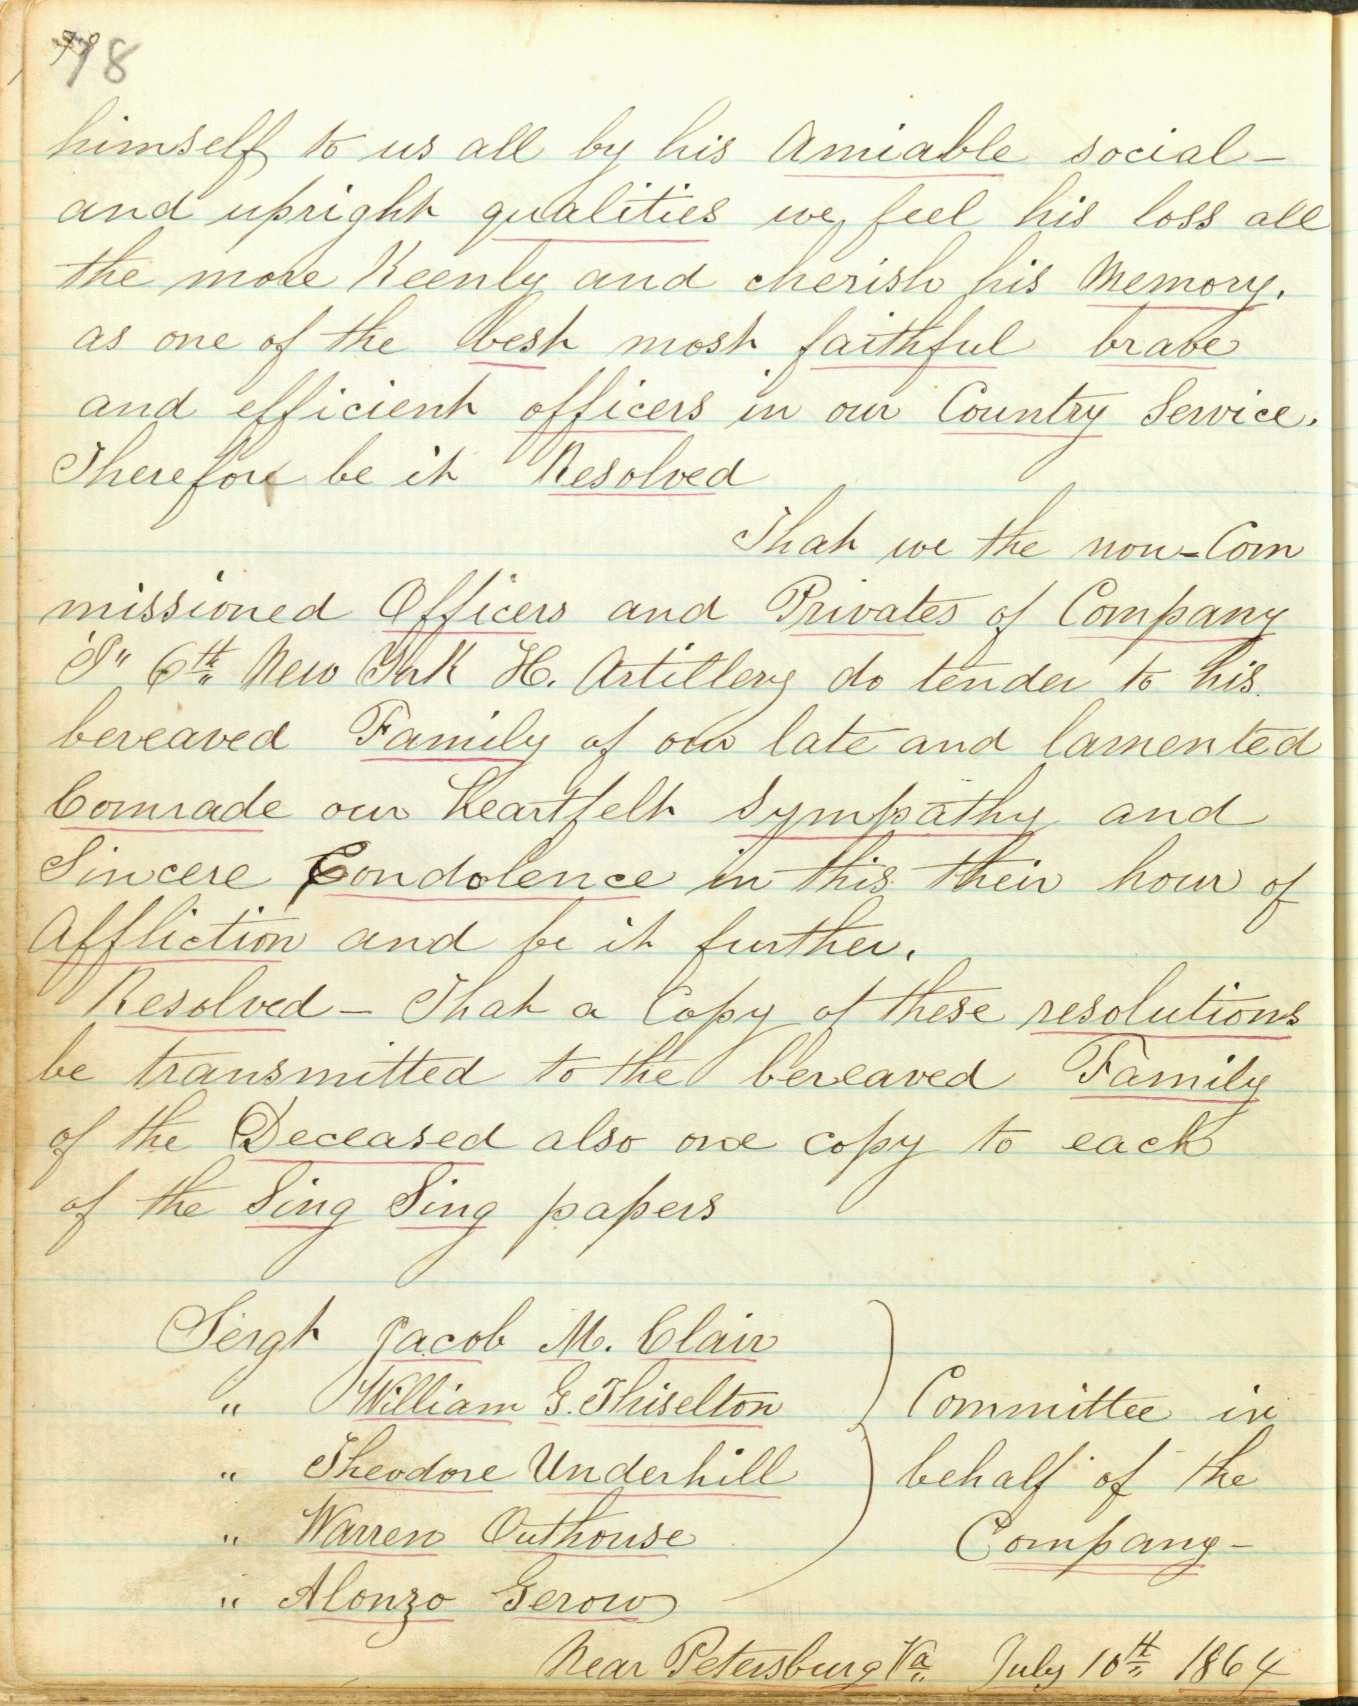 78
himself to us all by his Amiable social-
and upright qualities we feel his loss all
the more Keenly and cherish his Memory.
as one of the best most faithful brave
and efficient officers in our Country Service.
Therefore be it Resolved
That we the non-Com
missioned Officers and Privates of Company
6th New York H. Artillery do tender to his
bereaved Family of our late and lamented
Comrade our heartfelt Sympathy and
Sincere Condolence in this their hour of
Affliction and be it further.
Resolved - That a Copy of these resolutions
be transmitted to the bereaved Family
of the Deceased also one copy to each
of the Sing Sing papers
Sergt Jacob M. Clair
" William G. Thiselton
" Theodore Underhill
" Warren Outhouse
" Alonzo Gerow
Committee in
behalf of the
Company-
Near Petersburg Va July 10th 1864